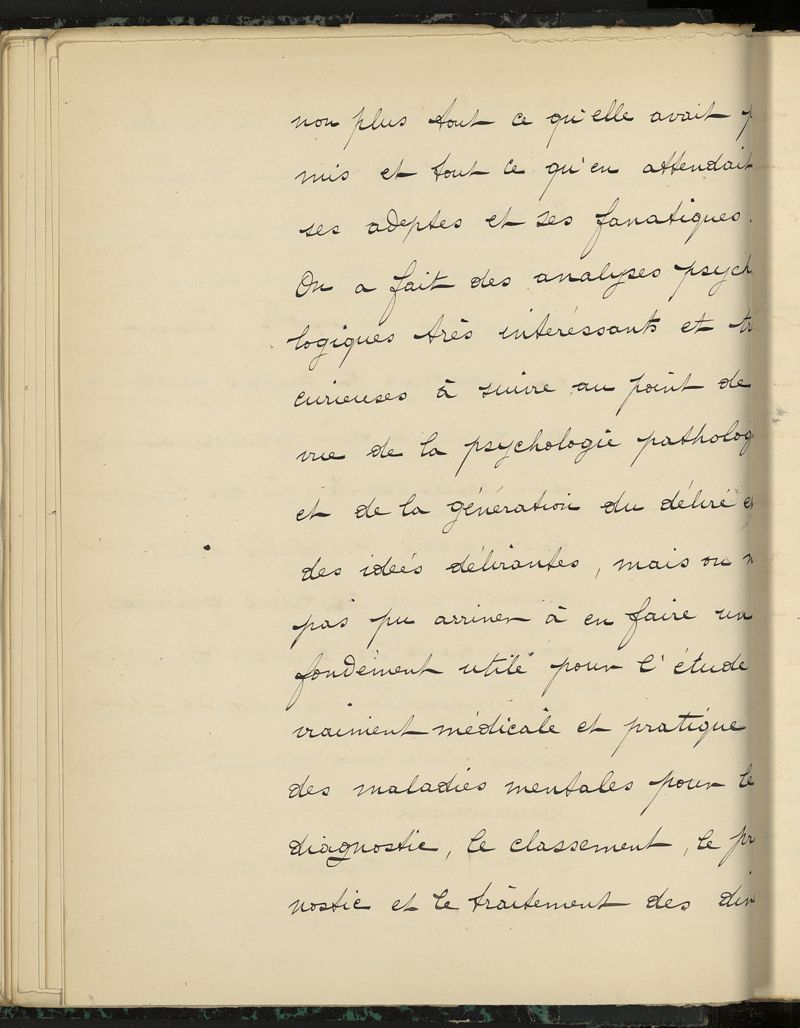 non plus tout ce qu'elle avait p
mis et tout ce qu'en attendait
ses adeptes et ses fanatiques.
On a fait des analyses psych
logiques très intéressants et tr
curieuses à suivre au point de
vue de la psychologie patholog
et de la génération du délire e
des idées délirantes, mais on n
pas pu arriver à en faire un
fondement utile pour l'étude
vraiment médicale et pratique
des maladies mentales pour le
diagnostic, le classement, le pr
nostic et le traitement des div